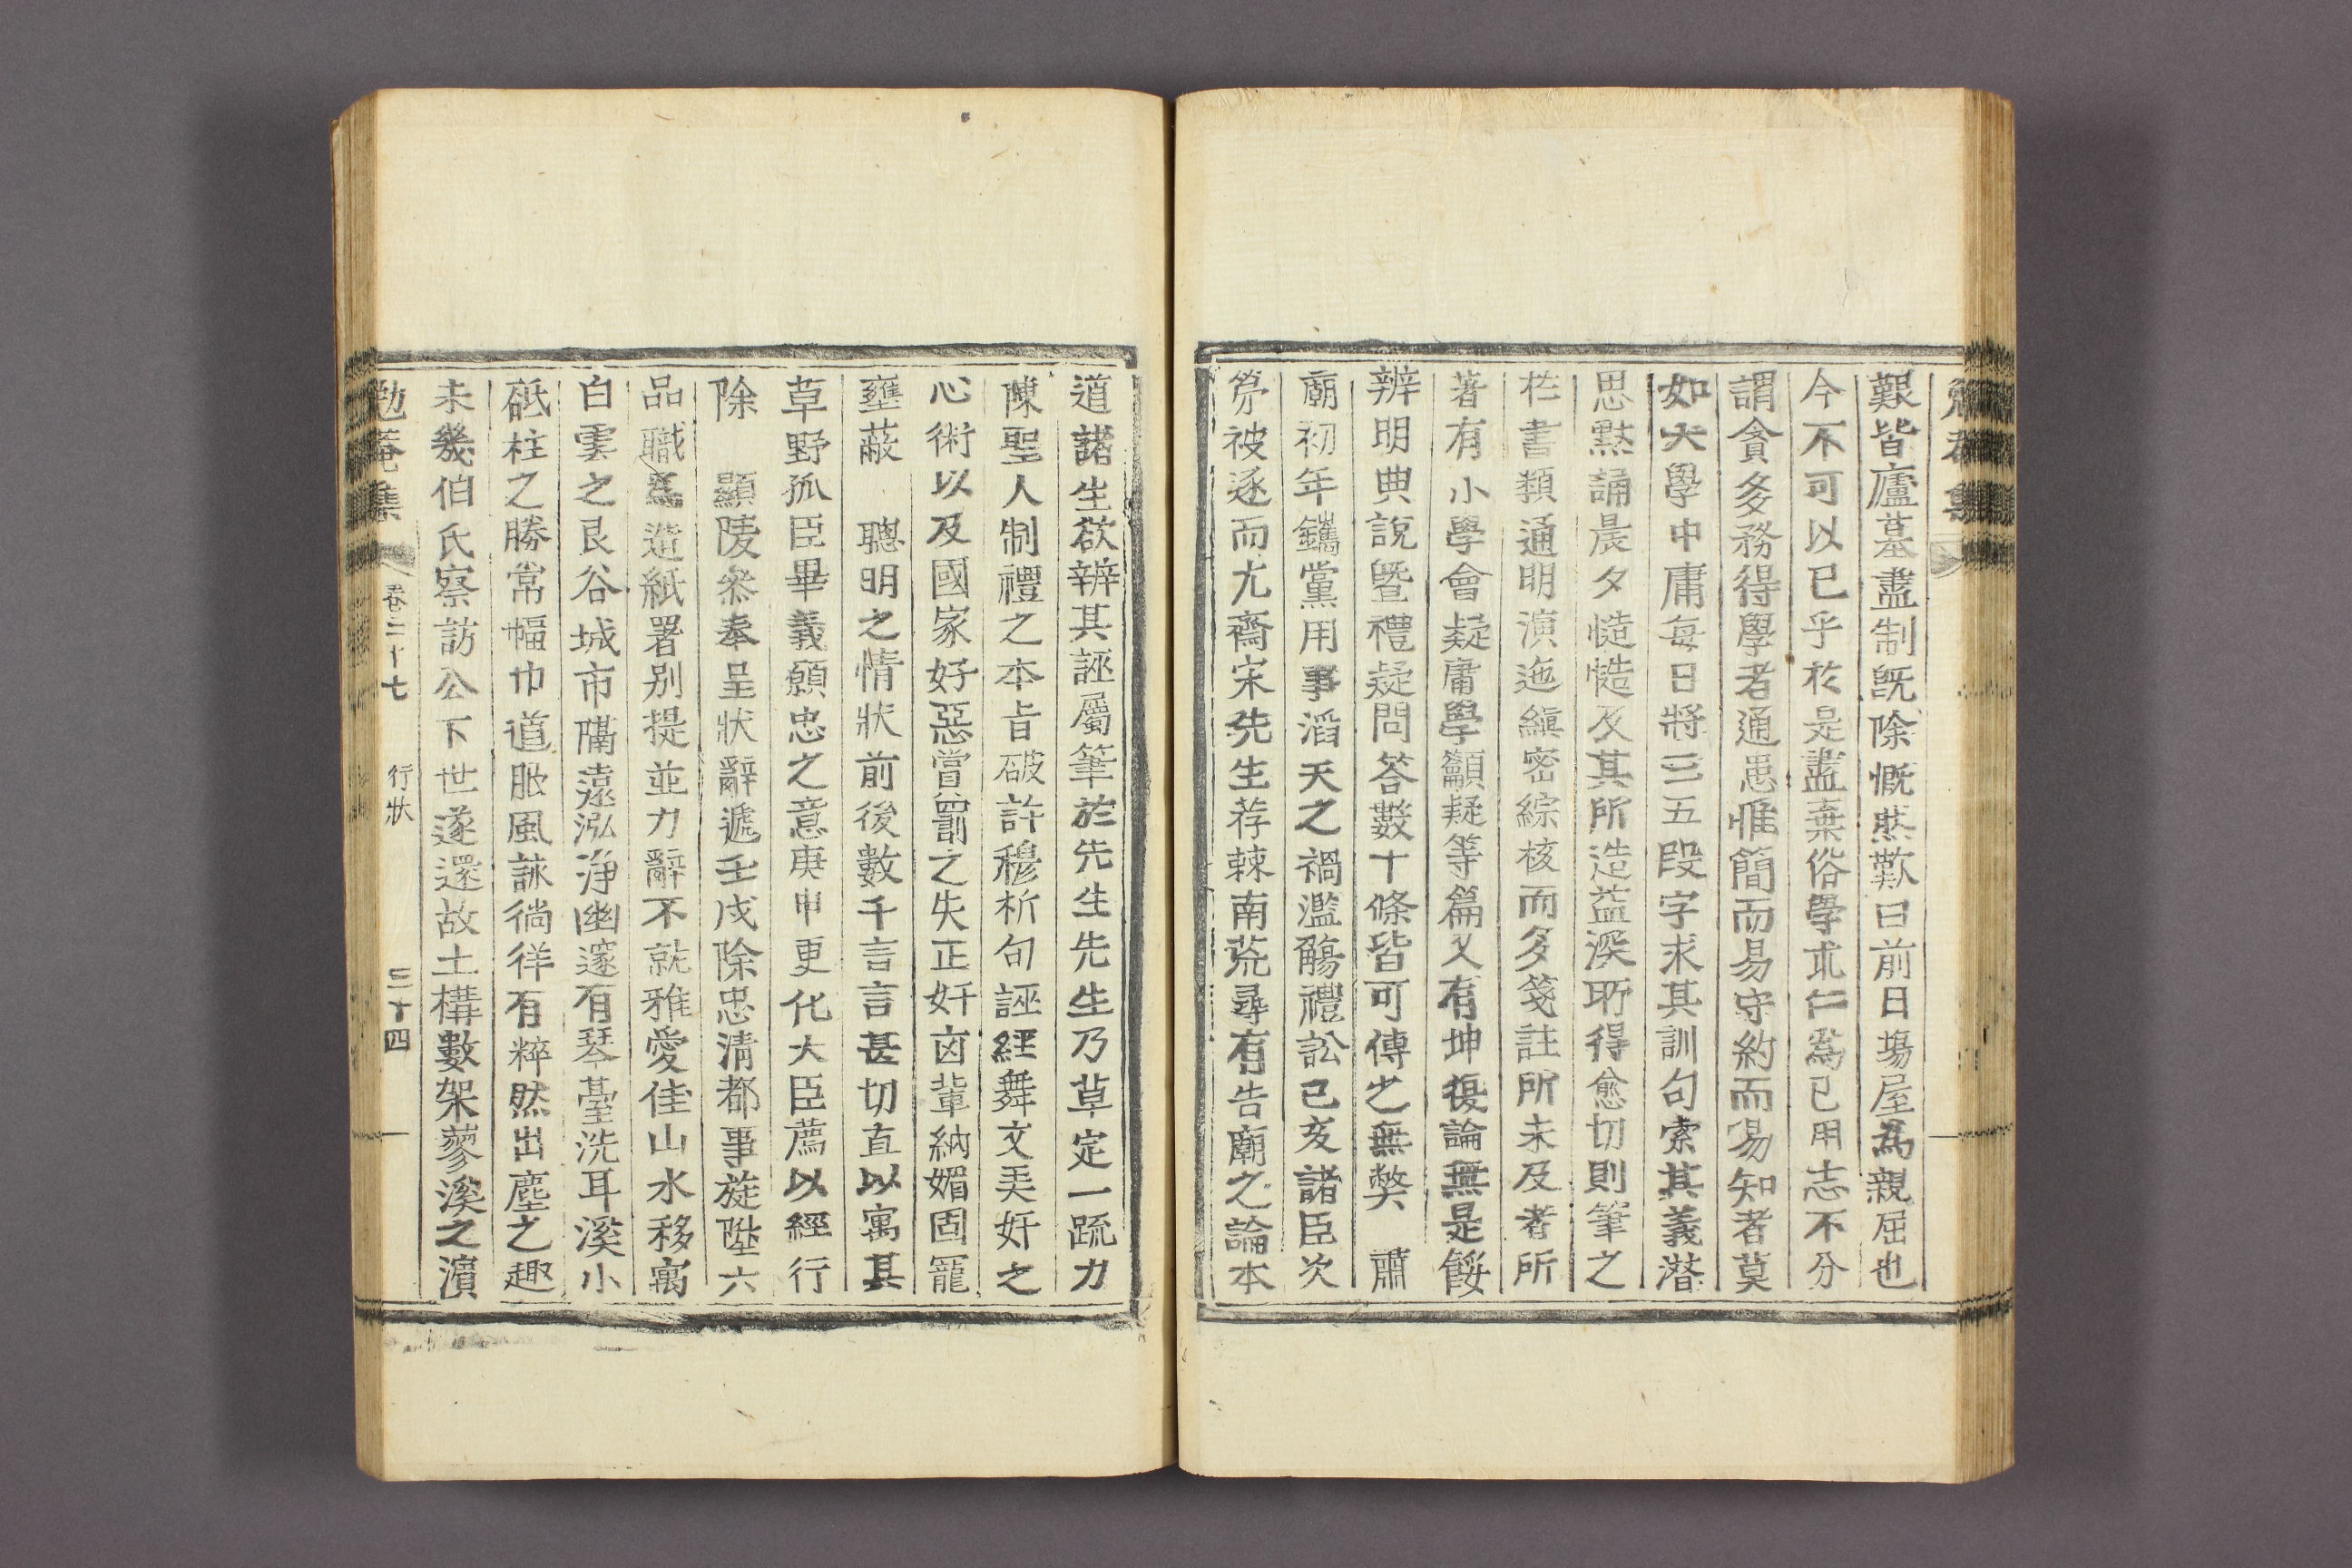 艱皆廬墓盡制旣除慨然歎曰前日場屋爲親屈也
今不可以已乎於是盡棄俗學求仁爲己用志不分
謂貪多務得學者通患惟簡而易守約而易知者莫
如大學中庸每日將三五段字求其訓句索其義潛
思默誦晨夕慥慥及其所造益深所得愈切則筆之
於書類通明演迤縝密綜核而多箋註所未及者所
著有小學會疑庸學籲疑等篇又有坤復論無是餒
辨明典說曁禮疑問答數十條皆可傳之無獘　肅
廟初年鑴黨用事滔天之禍濫觴禮訟己亥諸臣次
第被逐而尤齋宋先生荐棘南荒尋有告廟之論本
道諸生欲辨其誣屬筆於先生先生乃草定一疏力
陳聖人制禮之本旨破許穆析句誣經舞文美奸之
心術以及國家好惡賞罰之失正奸囱輩納媚固寵
壅蔽　聰明之情狀前後數千言言甚切直以寓其
草野孤臣畢義願忠之意庚申更化大臣薦以經行
除　顯陵叅奉呈狀辭遞壬戌除忠淸都事旋陞六
品職爲造紙署別提並力辭不就雅愛佳山水移寓
白雲之艮谷城市隔遠泓淨幽邃有琴臺洗耳溪小
砥柱之勝常幅巾道服風詠徜徉有粹然出塵之趣
未幾伯氏察訪公下世遂還故土構數架蓼溪之濵
勉菴集　卷二十七　行狀　三十四